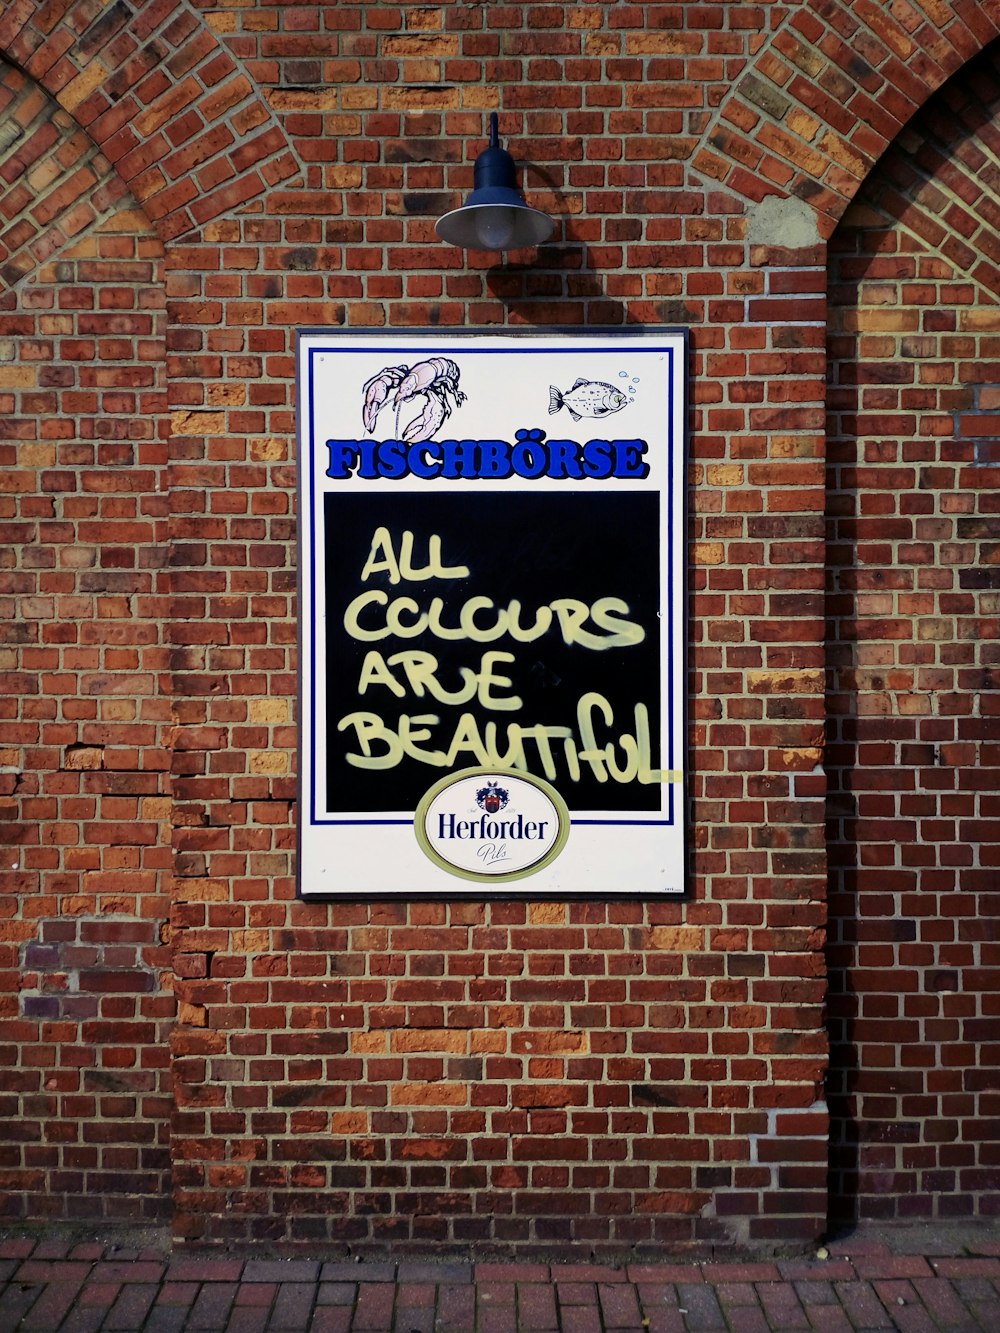 FISCHBÖRSE
ALL
COLOURS
ARE
BEAUTIfUL
Herforder
Pils